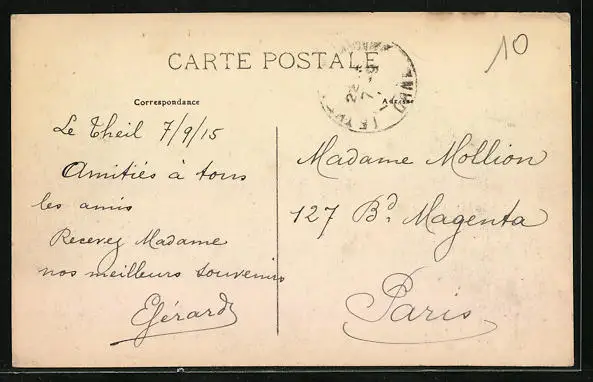 10
CARTE POSTALE
Correspondance
Adresse
Le Theil 7/9/15
Amitiés à tous
les amis
Recevez Madame
nos meilleurs souvenirs
EGérard
Madame Mollion
127 Bd. Magenta
Paris